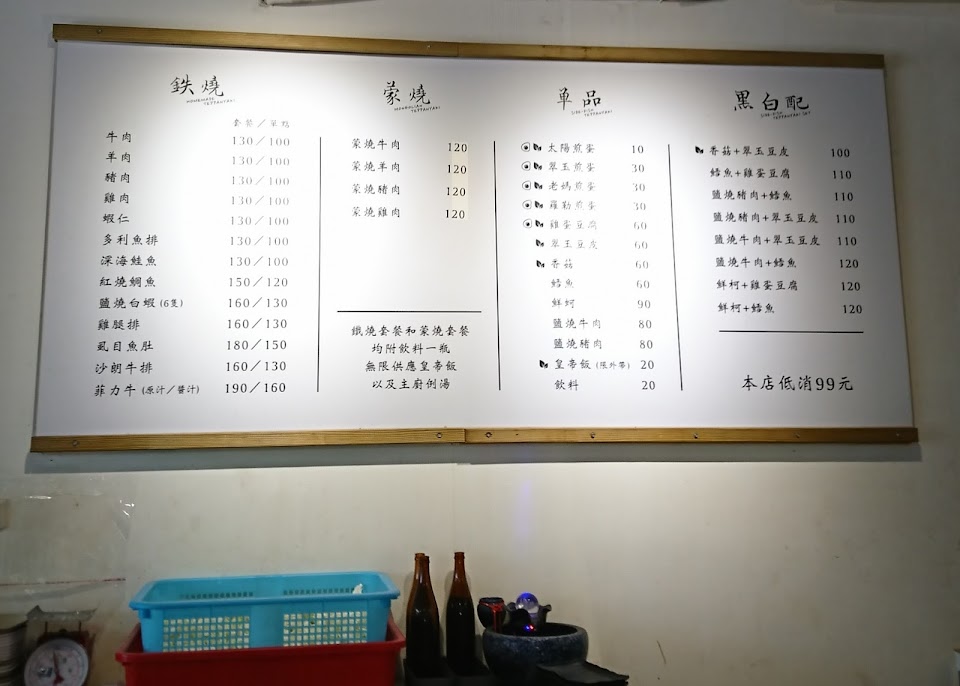 鉄燒
套餐/單點
牛肉 130/100
羊肉 130/100
豬肉 130/100
雞肉 130/100
蝦仁 130/100
多利魚排 130/100
深海鮭魚 130/100
紅燒鯛魚 150/120
鹽燒白蝦(6隻) 160/130
雞腿排 160/130
虱目魚肚 180/150
沙朗牛排 160/130
菲力牛(原汁/醬汁) 190/160
蒙燒
MONGOLIAN
TEPPANYAKI
蒙燒牛肉 120
蒙燒羊肉 120
蒙燒豬肉 120
蒙燒雞肉 120
鐵燒套餐和蒙燒套餐
均附飲料一瓶
無限供應皇帝飯
以及主廚例湯
單品
SIDE-DISH
TEPPANYAKI
太陽煎蛋 10
翠玉煎蛋 30
老媽煎蛋 30
羅勒煎蛋 30
雞蛋豆腐 60
翠玉豆皮 60
香菇 60
鱈魚 60
鮮蚵 90
鹽燒牛肉 80
鹽燒豬肉 80
皇帝飯(限外帶) 20
飲料 20
黑白配
SIDE-DISH
TEPPANYAKI SET
香菇+翠玉豆皮 100
鱈魚+雞蛋豆腐 110
鹽燒豬肉+鱈魚 110
鹽燒豬肉+翠玉豆皮 110
鹽燒牛肉+翠玉豆皮 110
鹽燒牛肉+鱈魚 120
鮮蚵+雞蛋豆腐 120
鮮蚵+鱈魚 120
本店低消99元